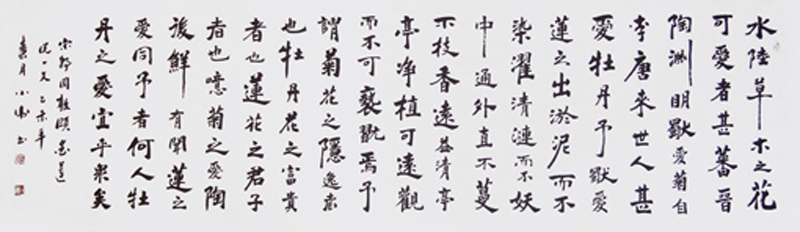 水陸草木之花
可愛者甚蕃晉
陶淵明獨愛菊自
李唐來世人甚
愛牡丹予獨愛
蓮之出淤泥而不
染濯清漣而不妖
中通外直不蔓
不枝香遠益清亭
亭净植可遠觀
而不可褻翫焉予
謂菊花之隱逸者
也牡丹花之富貴
者也蓮花之君子
者也噫菊之愛陶
後鮮有聞蓮之
愛同予者何人牡
丹之愛宜乎衆矣
宋周敦頤愛蓮
說一文乙未年
月小書